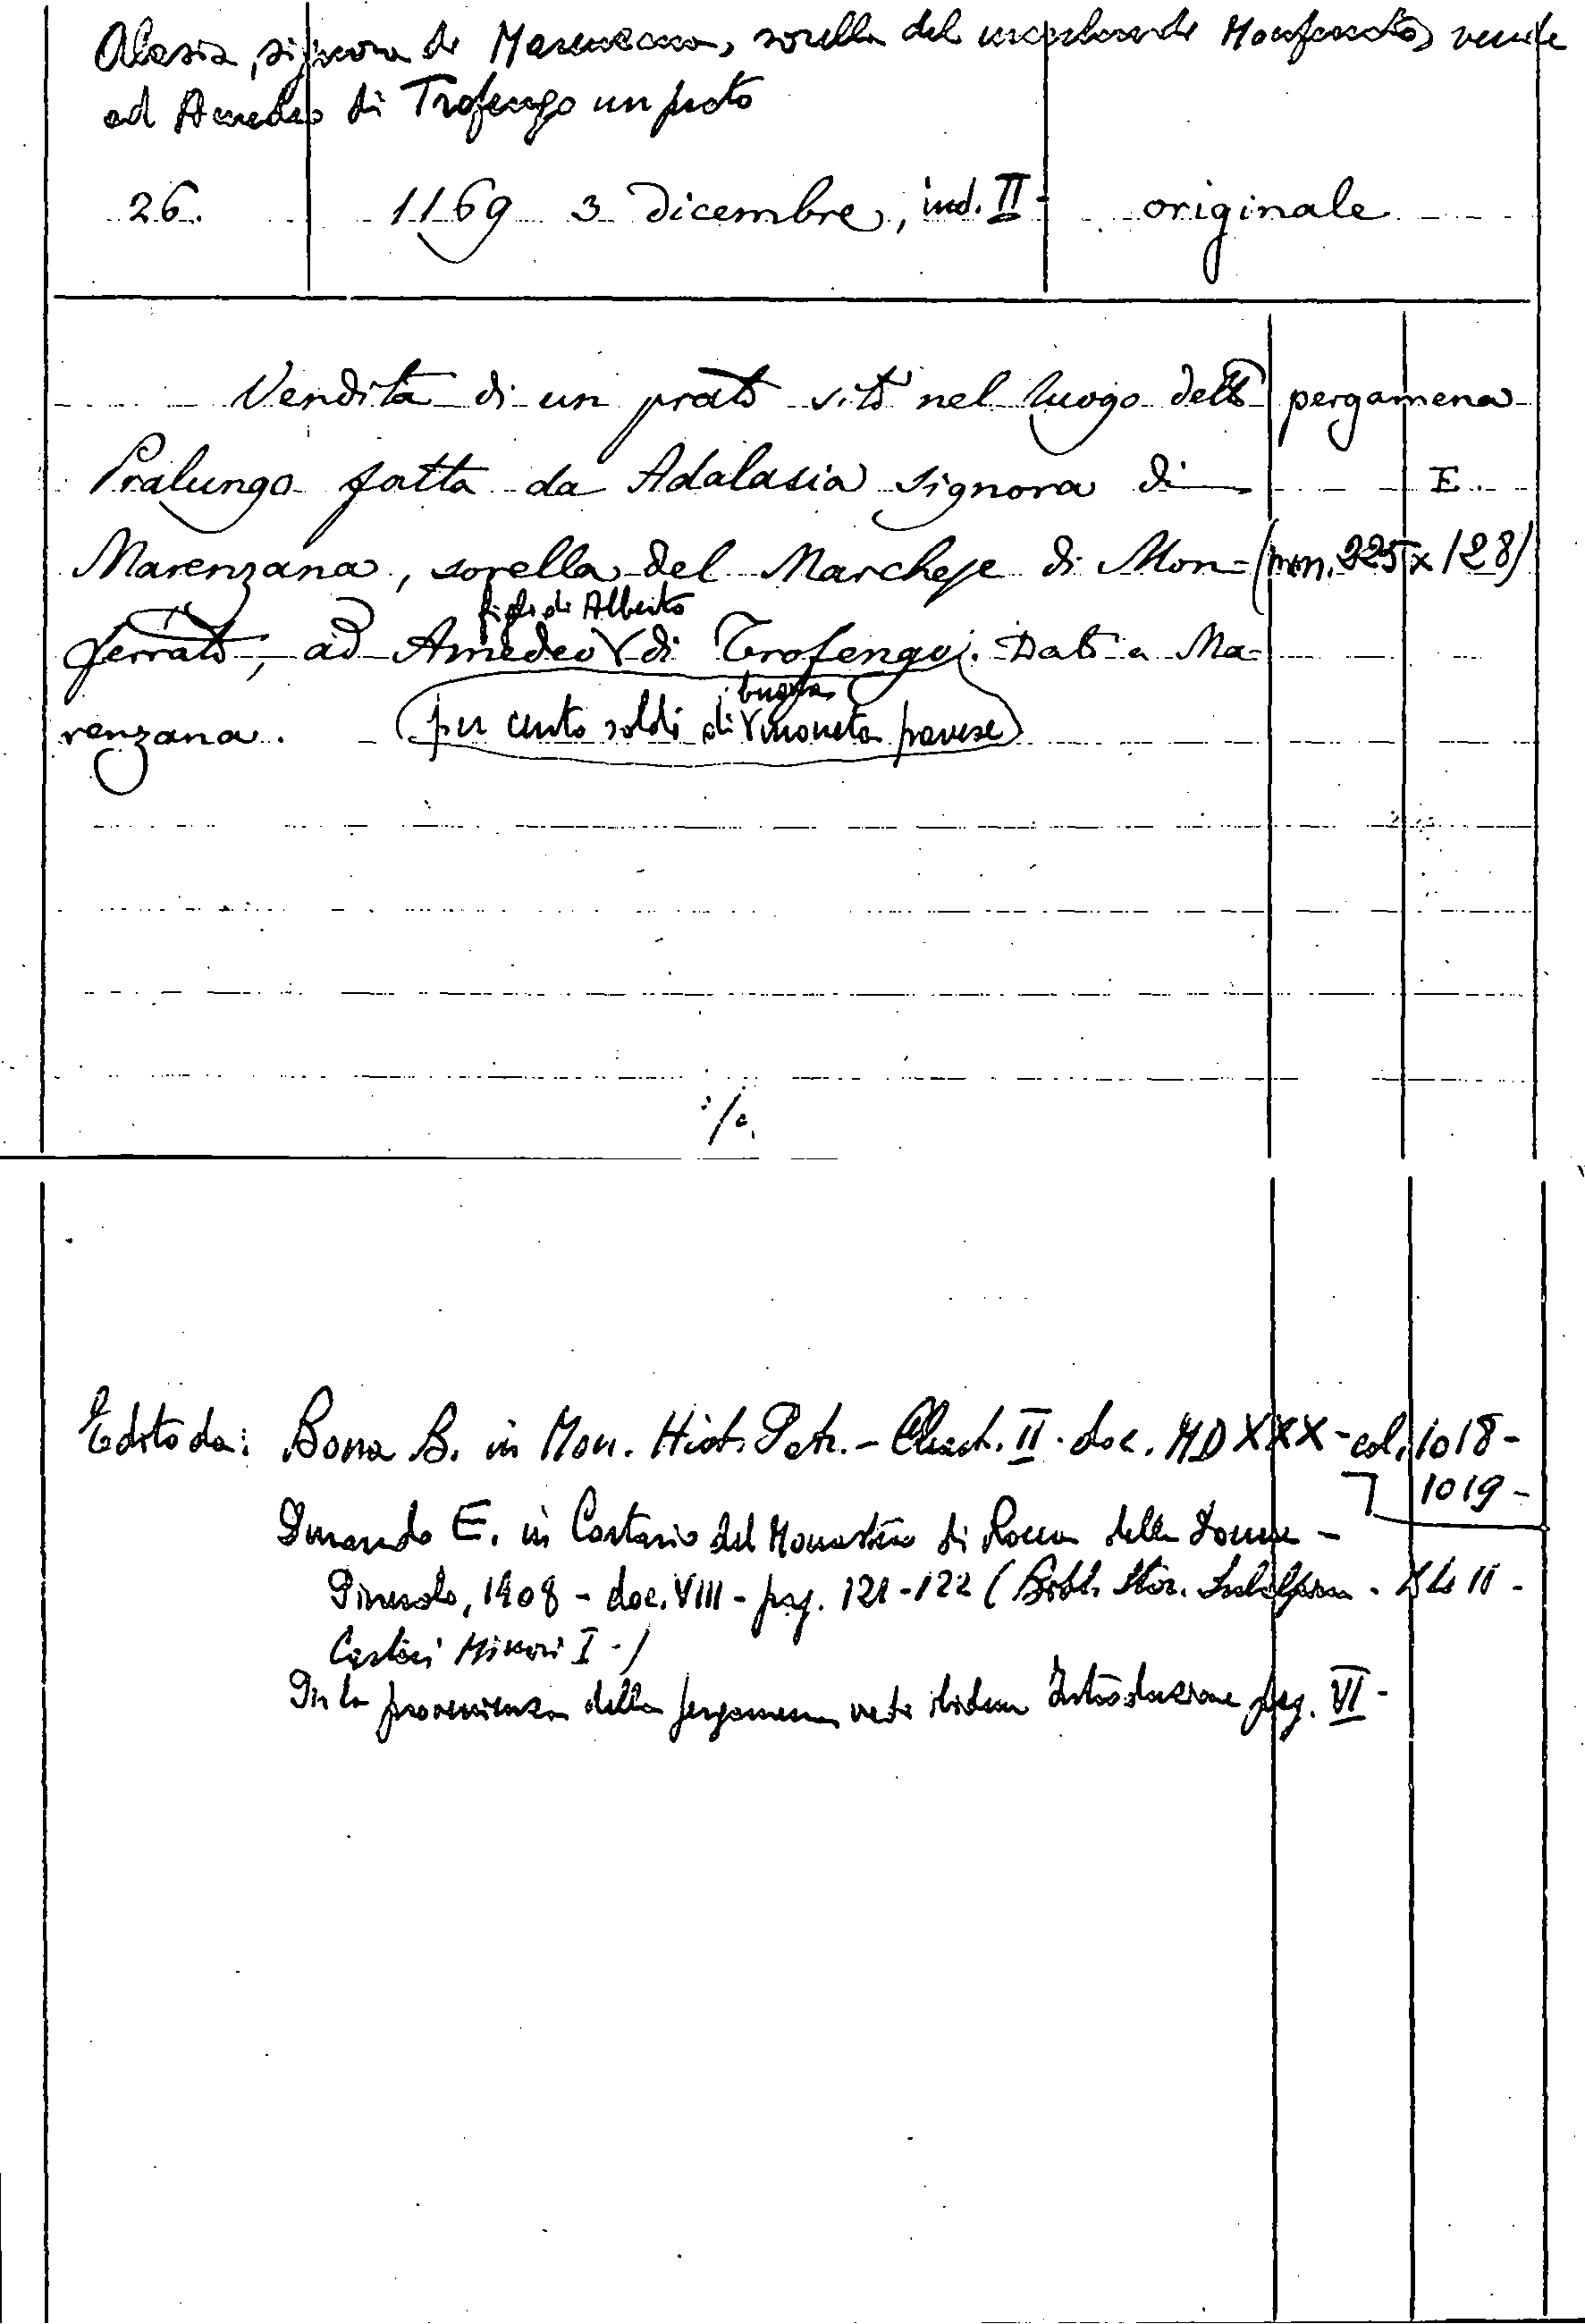 Alasia, signora di Marenzana, sorella del marchese di Monferrato, vende
ad Amedeo di Trofengo un prato
26. 1169 3 Dicembre, ind. II - originale
Vendita di un prato sito nel luogo detto pergamena
Pralungo fatta da Adalasia signora di E.
Marenzana, sorella del Marchese di Mon= (mm. 225 x 128)
figlio di Alberto
ferrato, ad Amedeo di Trofengo. Dato a Ma=
buona
renzana. per cento soldi di moneta pavese
./.
Edito da: Bona B. in Mon. Hist. Patr. - Chart. II. doc. MDXXX - col. 1018 -
1019 -
Durando E. in Cartario del Monastero di Rocca delle Donne -
Pinerolo, 1908 - doc. VIII - pag. 121-122 (Bibl. Stor. Subalpina -
Cartari Minori I -)
Per la provenienza della pergamena vedi ibidem Introduzione pag. VI -